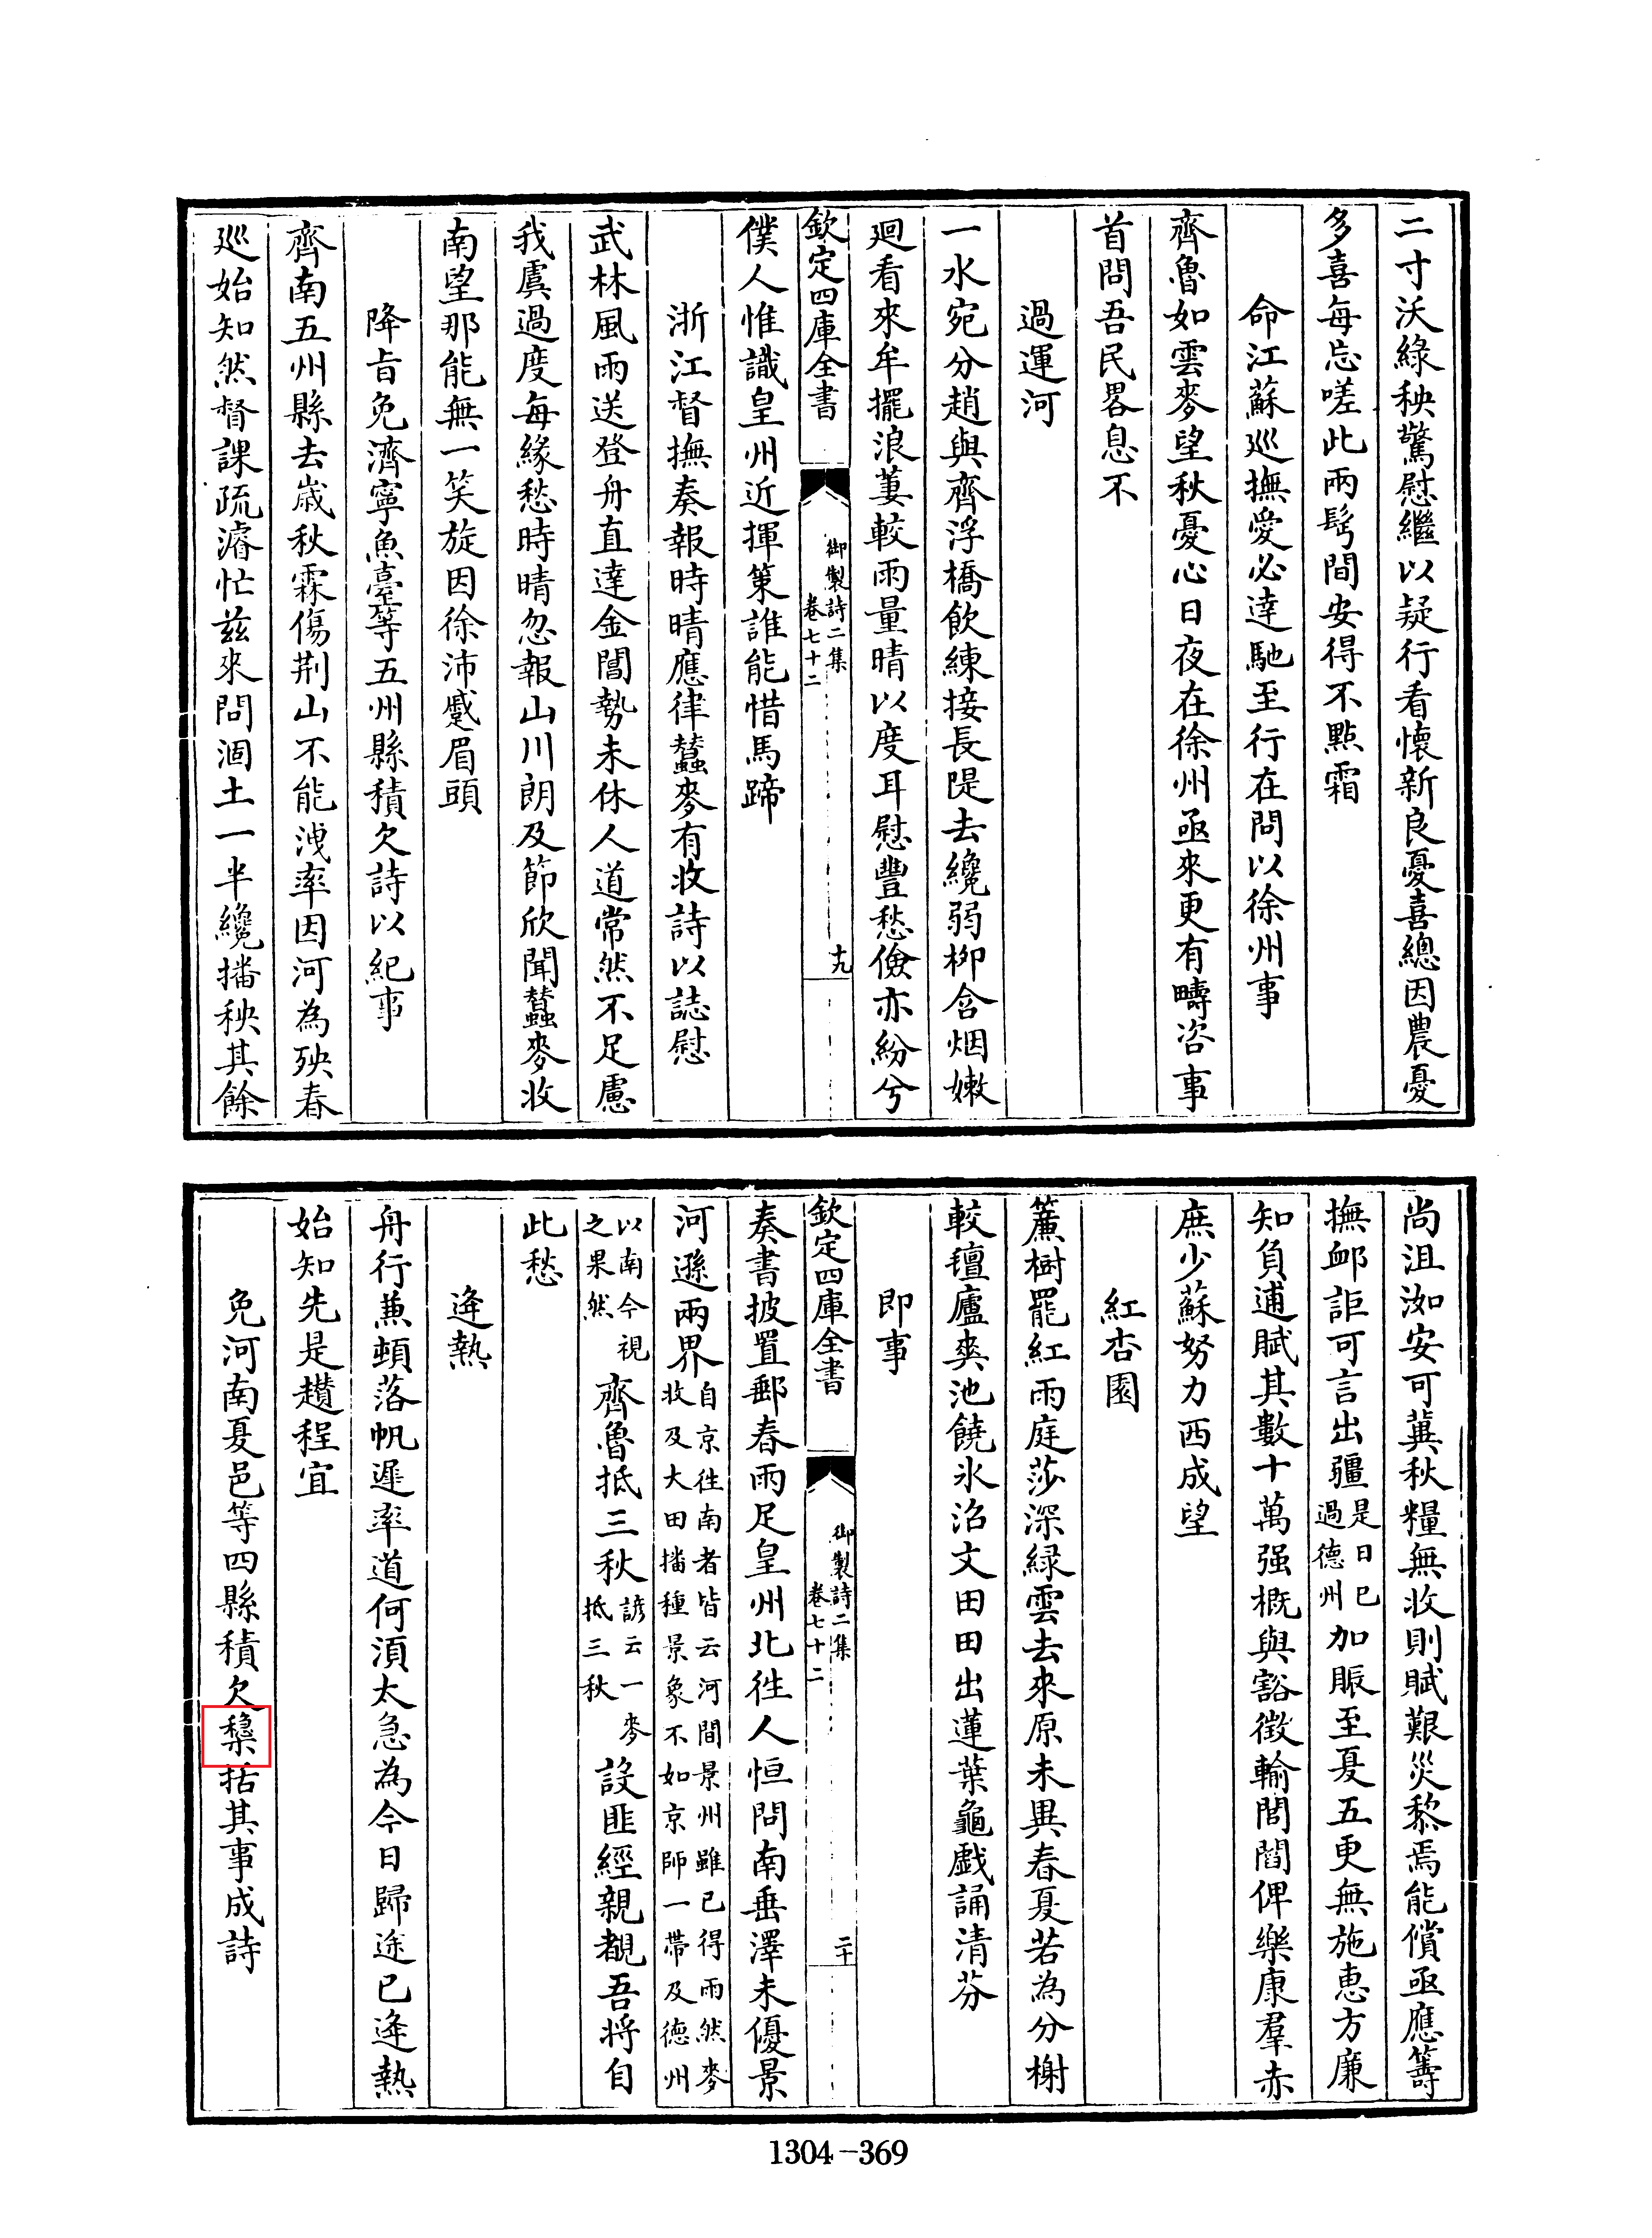 二寸沃綠秧驚慰繼以疑行看懷新良憂喜總因農憂
多喜每忘嗟此兩髩間安得不點霜
命江蘇巡撫愛必達馳至行在問以徐州事
齊魯如雲麥望秋憂心日夜在徐州亟來更有疇咨事
首問吾民畧息不
過運河
一水宛分趙與齊浮橋飲練接長隄去纔弱柳含烟嫩
廻看來牟擺浪萋較雨量晴以度耳慰豐愁儉亦紛兮
欽定四庫全書
御製詩二集
卷七十二
十九
僕人惟識皇州近揮策誰能惜馬蹄
浙江督撫奏報時晴應律蠶麥有收詩以誌慰
武林風雨送登舟直達金閶勢未休人道常然不足慮
我虞過度每緣愁時晴忽報山川朗及節欣聞蠶麥收
南望那能無一笑旋因徐沛蹙眉頭
降旨免濟寧魚臺等五州縣積欠詩以紀事
齊南五州縣去歲秋霖傷荆山不能洩率因河為殃春
巡始知然督課疏濬忙兹來問涸土一半纔播秧其餘
尚沮洳安可冀秋糧無收則賦艱災黎焉能償亟應籌
撫卹詎可言出疆是日已過德州加賑至夏五更無施惠方廉
知負逋賦其數十萬强概與豁徵輸閭閻俾樂康羣赤
庶少蘇努力西成望
紅杏園
簾樹罷紅雨庭莎深緑雲去來原未異春夏若為分榭
較氊廬爽池饒氷沼文田田出蓮葉龜戲誦清芬
即事
欽定四庫全書
御製詩二集
卷七十二
二十
奏書披置郵春雨足皇州北徃人恒問南垂澤未優景
河遜兩界自京徃南者皆云河間景州雖已得雨然麥收及大田播種景象不如京師一帶及德州
以南今視之果然齊魯抵三秋諺云一麥抵三秋設匪經親覩吾將自
此愁
逄熱
舟行兼頓落帆遲率道何湏太急為今日歸途已逄熱
始知先是趲程宜
免河南夏邑等四縣積欠檃括其事成詩
1304-369